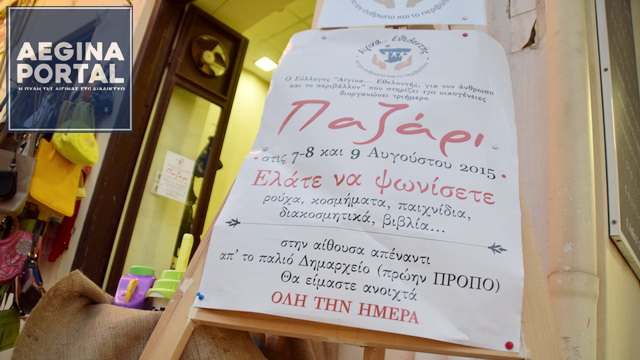 AEGINA
PORTAL
Η ΠΥΛΗ ΤΗΣ ΑΙΓΙΝΑΣ ΣΤΟ ΔΙΑΔΙΚΤΥΟ
Αίγινα... Εθελοντής
Ο Σύλλογος "Αίγινα... Εθελοντής, για τον άνθρωπο
και το περιβάλλον" που στηρίζει 170 οικογένειες
διοργανώνει τριήμερο
Παζάρι
στις 7-8 και 9 Αυγούστου 2015
Ελάτε να ψωνίσετε
ρούχα, κοσμήματα, παιχνίδια,
διακοσμητικά, βιβλία...
στην αίθουσα απέναντι
απ' το παλιό Δημαρχείο (πρώην ΠΡΟΠΟ)
Θα είμαστε ανοιχτά
ΟΛΗ ΤΗΝ ΗΜΕΡΑ